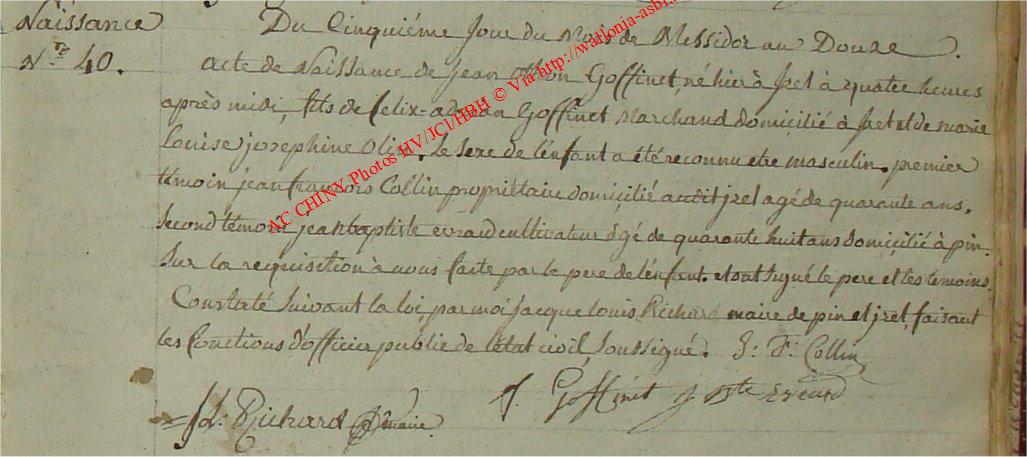 Naissance
N.ro 40.
Du Cinquiéme Jour du Mois de Messidor an Douze.
acte de Naissance de jean Goffinet, né hier à Jzel à quatre heures
après midi, fils de felix= Goffinet Marchand domicilié à Jzel et de marie
Louise josephine. Le Sexe de l'enfant a été reconnu etre masculin. premier
témoin jean françois Collin propriétaire domicilié audit jzel agé de quarante ans.
Second témoin jean baptiste evrard cultivateur agé de quarante huit ans domicilié à pin.
Sur la requisition à nous faite par le pere de l'enfant. et ont signé le pere et les temoins.
Constaté suivant la loi, par moi jacque louis Richard maire de pin et jzel, faisant
les fonctions d'officier public de l'état civil, soussigné. J: F: Collin
Goffinet j Bte evrard
JL: Richard maire.
AC CHINY Photos HV/JCl/HBH © Via-http://wallonia-asbl